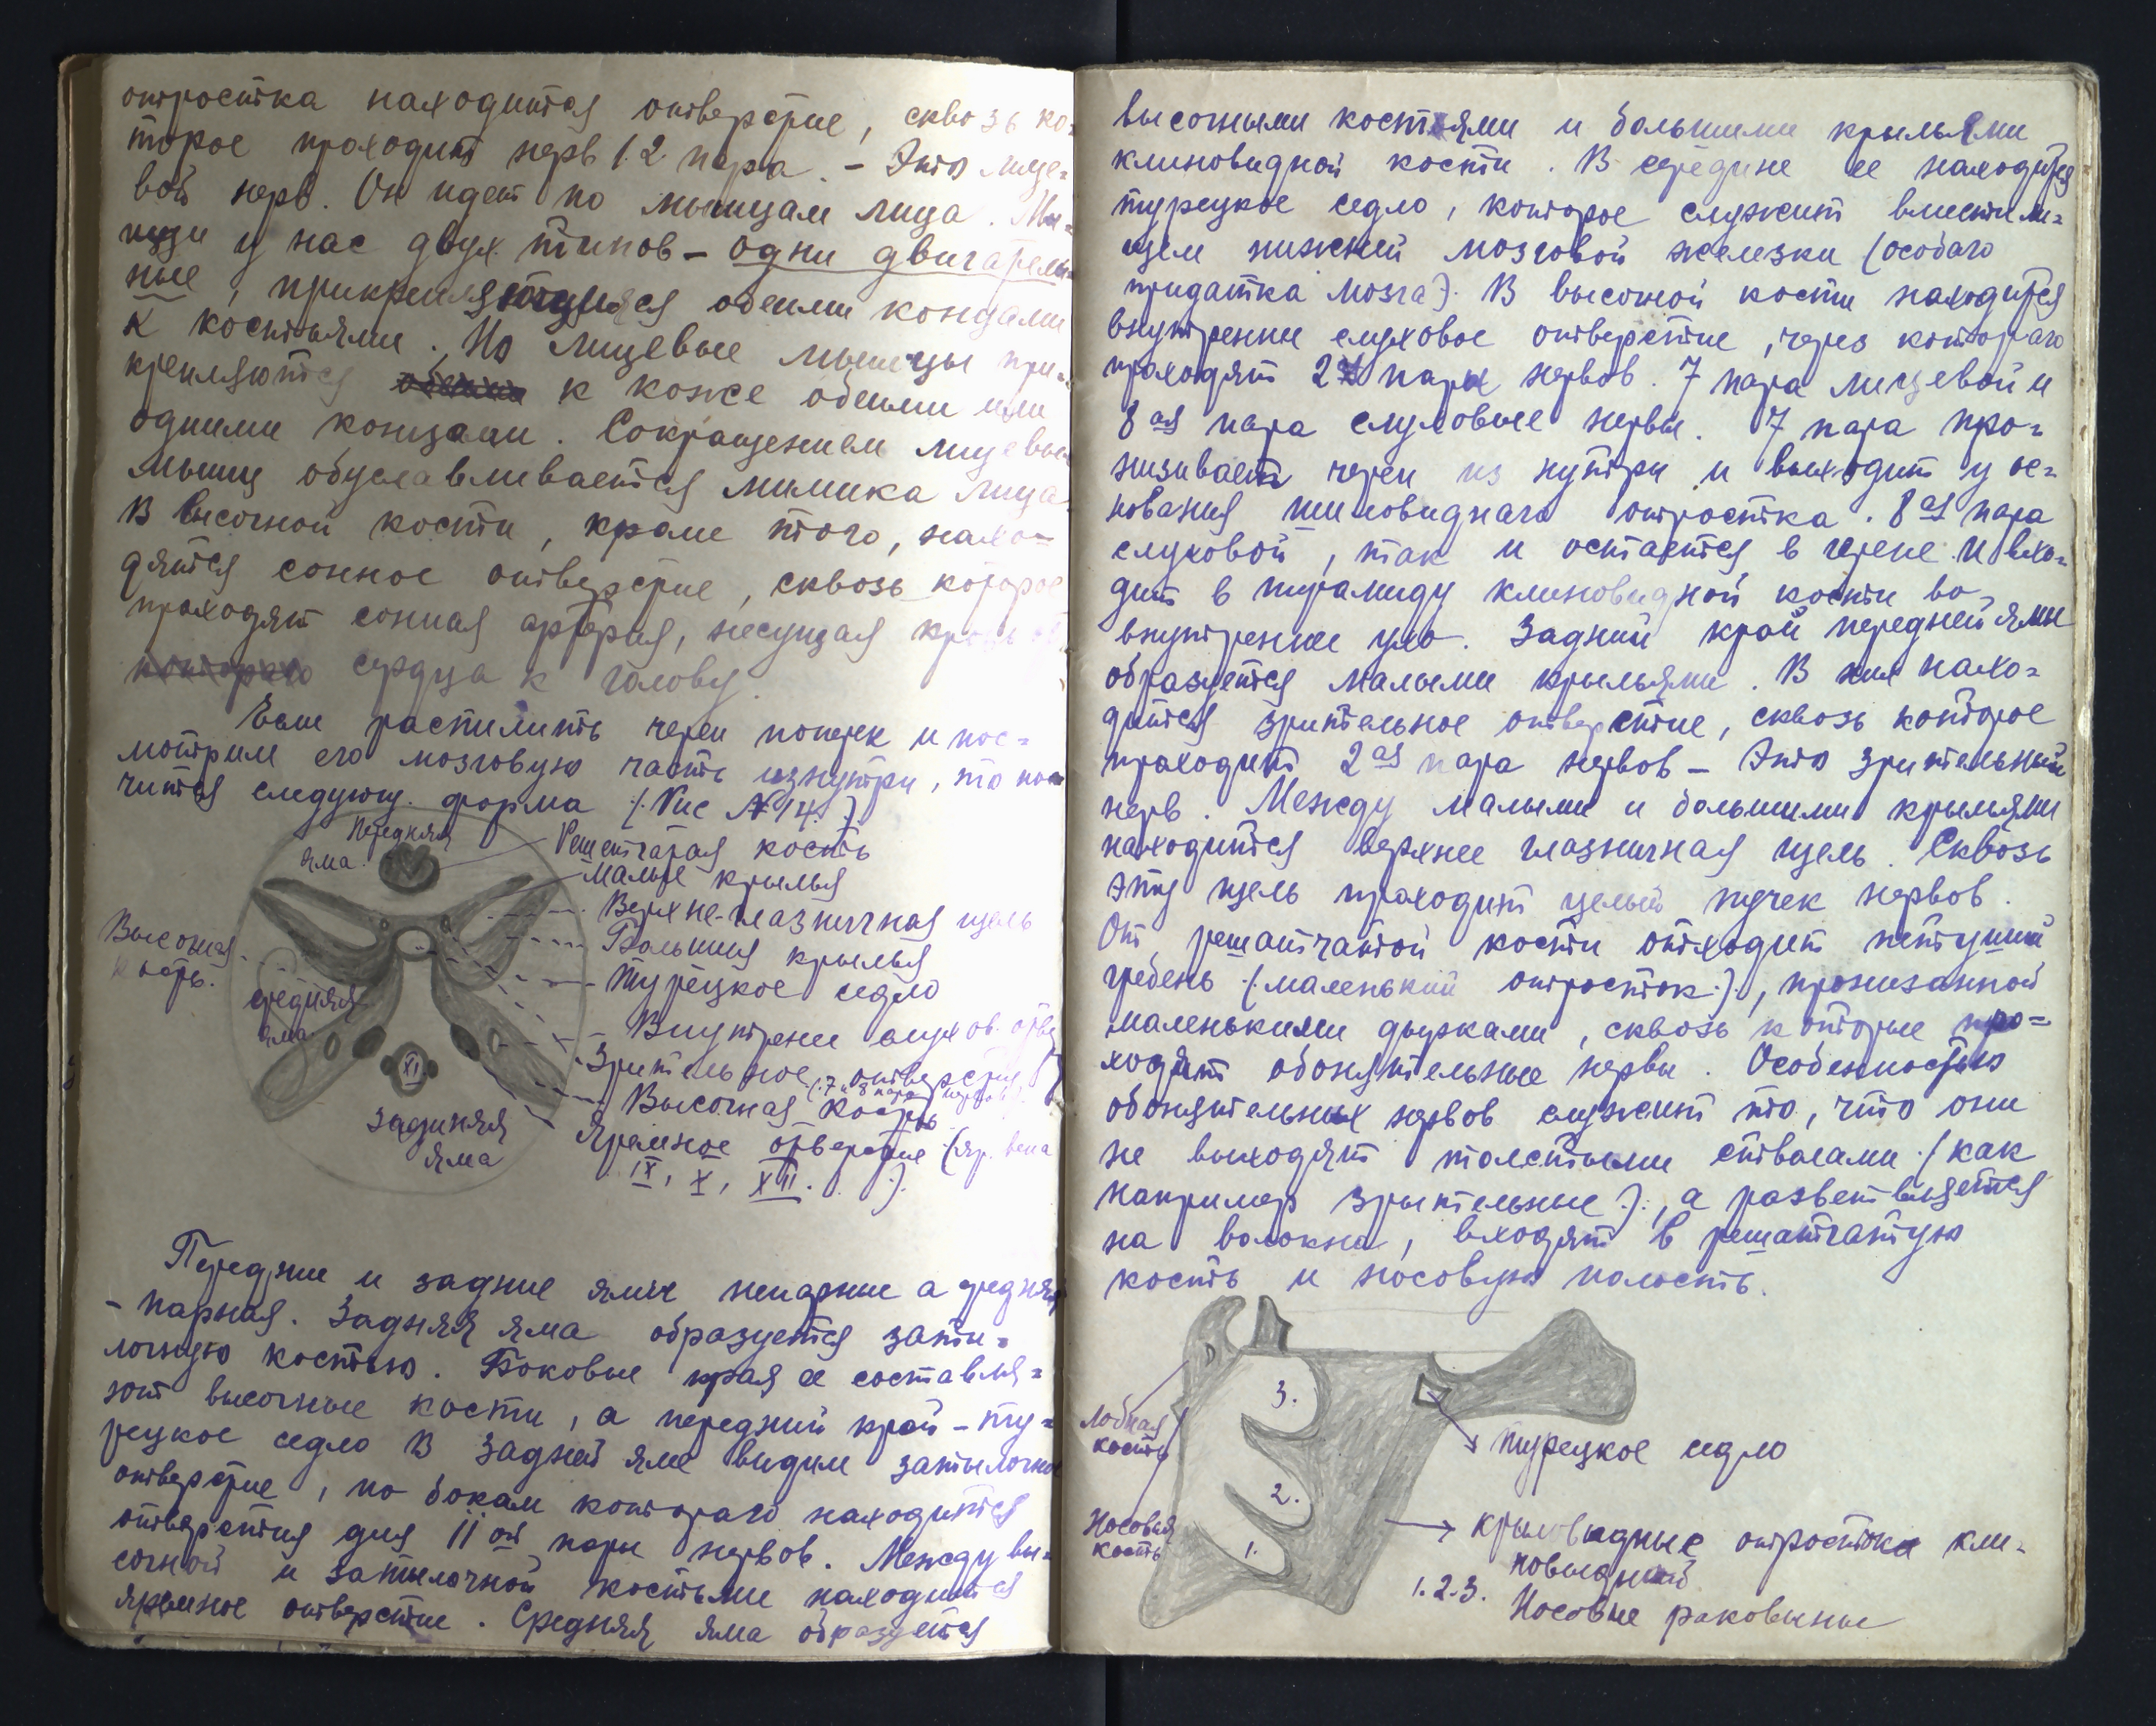 отростка находится отверстие, сквозь ко-
торое проходит нерв 12 пара. – Это лице-
вой нерв. Он идет по мышцам лица. Мы-
шцы у нас двух типов – одни двигатель-
ные, прикрепляющиеся обеими концами
к костьями. Но лицевые мышцы при-
крепляются к коже обеими или
одними концами. Сокращением лицевых
мышц обуславливается мимика лица.
В височной кости, кроме того, нахо-
дятся сонное отверстие, сквозь которое
проходят сонная артерия, несущая кровь от
сердца к голову.
Если распилить череп поперек и пос-
мотрим его мозговую часть изнутри, то пол
чится следующ. форма (Рис №14.)
Передняя
яма.
Решетчатая кость
Малые крылья
Верхне-глазничная щель
Большия крылья
Турецкое седло
Височная
кость.
средняя
яма.
Внутрене слухов. отве
Зрительное отверстие
(7 и 8 пара нервов)
Височная кость
XI
Задняя
яма
Яремное отверстие (яр. вена
IX, X, XII. ).
Передние и задние ямы непарные а средняя
– парная. Задняя яма образуется заты-
лочную костью. Боковые края ее составля-
ют височные кости, а передний край – ту-
рецкое седло В задней яме видим затылочное
отверстие, по бокам котораго находится
отверстия для 11ой пары нервов. Между ви-
сочной и затылочной костьми находится
яремное отверстие. Средняя яма образуется
височными костями и большими крыльями
клиновидной кости. В середине ее находится
турецкое седло, которое служит вместили-
щем нижней мозговой железки (особаго
придатка мозга). В височной кости находится
внутренне слуховое отверстие, через котораго
проходят 2 пары нервов. 7 пара лицевой и
8ая пара слуховые нервы. 7 пара про-
низывает череп из нутри и выходит у ос-
нования шиловиднаго отростка. 8ая пара
слуховой, так и остается в черепе и вхо-
дит в пирамиду клиновидной кости во
внутренне ухо. Задний край передней ямы
образуется малыми крыльями. В них нахо-
дится зрительное отверстие, сквозь которое
проходит 2ая пара нервов – Это зрительный
нерв. Между малыми и большими крыльями
находится верхнее глазничная щель. Сквозь
эту щель проходит целый пучек нервов.
От решатчатой кости отходит петуший
гребень (маленький отросток), пронизанной
маленькими дырками, сквозь которые про-
ходят обонятельные нервы. Особенностью
обонятельных нервов служит то, что они
не выходят толстыми стволами (как
например зрительные), а разветвляется
на волокна, входят в решатчатую
кость и носовую полость.
Лобная
кость
3.
Турецкое седло
2.
Носовая
кость
1.
крыловидные отростки кли-
новидной
1.2.3. Носовые раковины